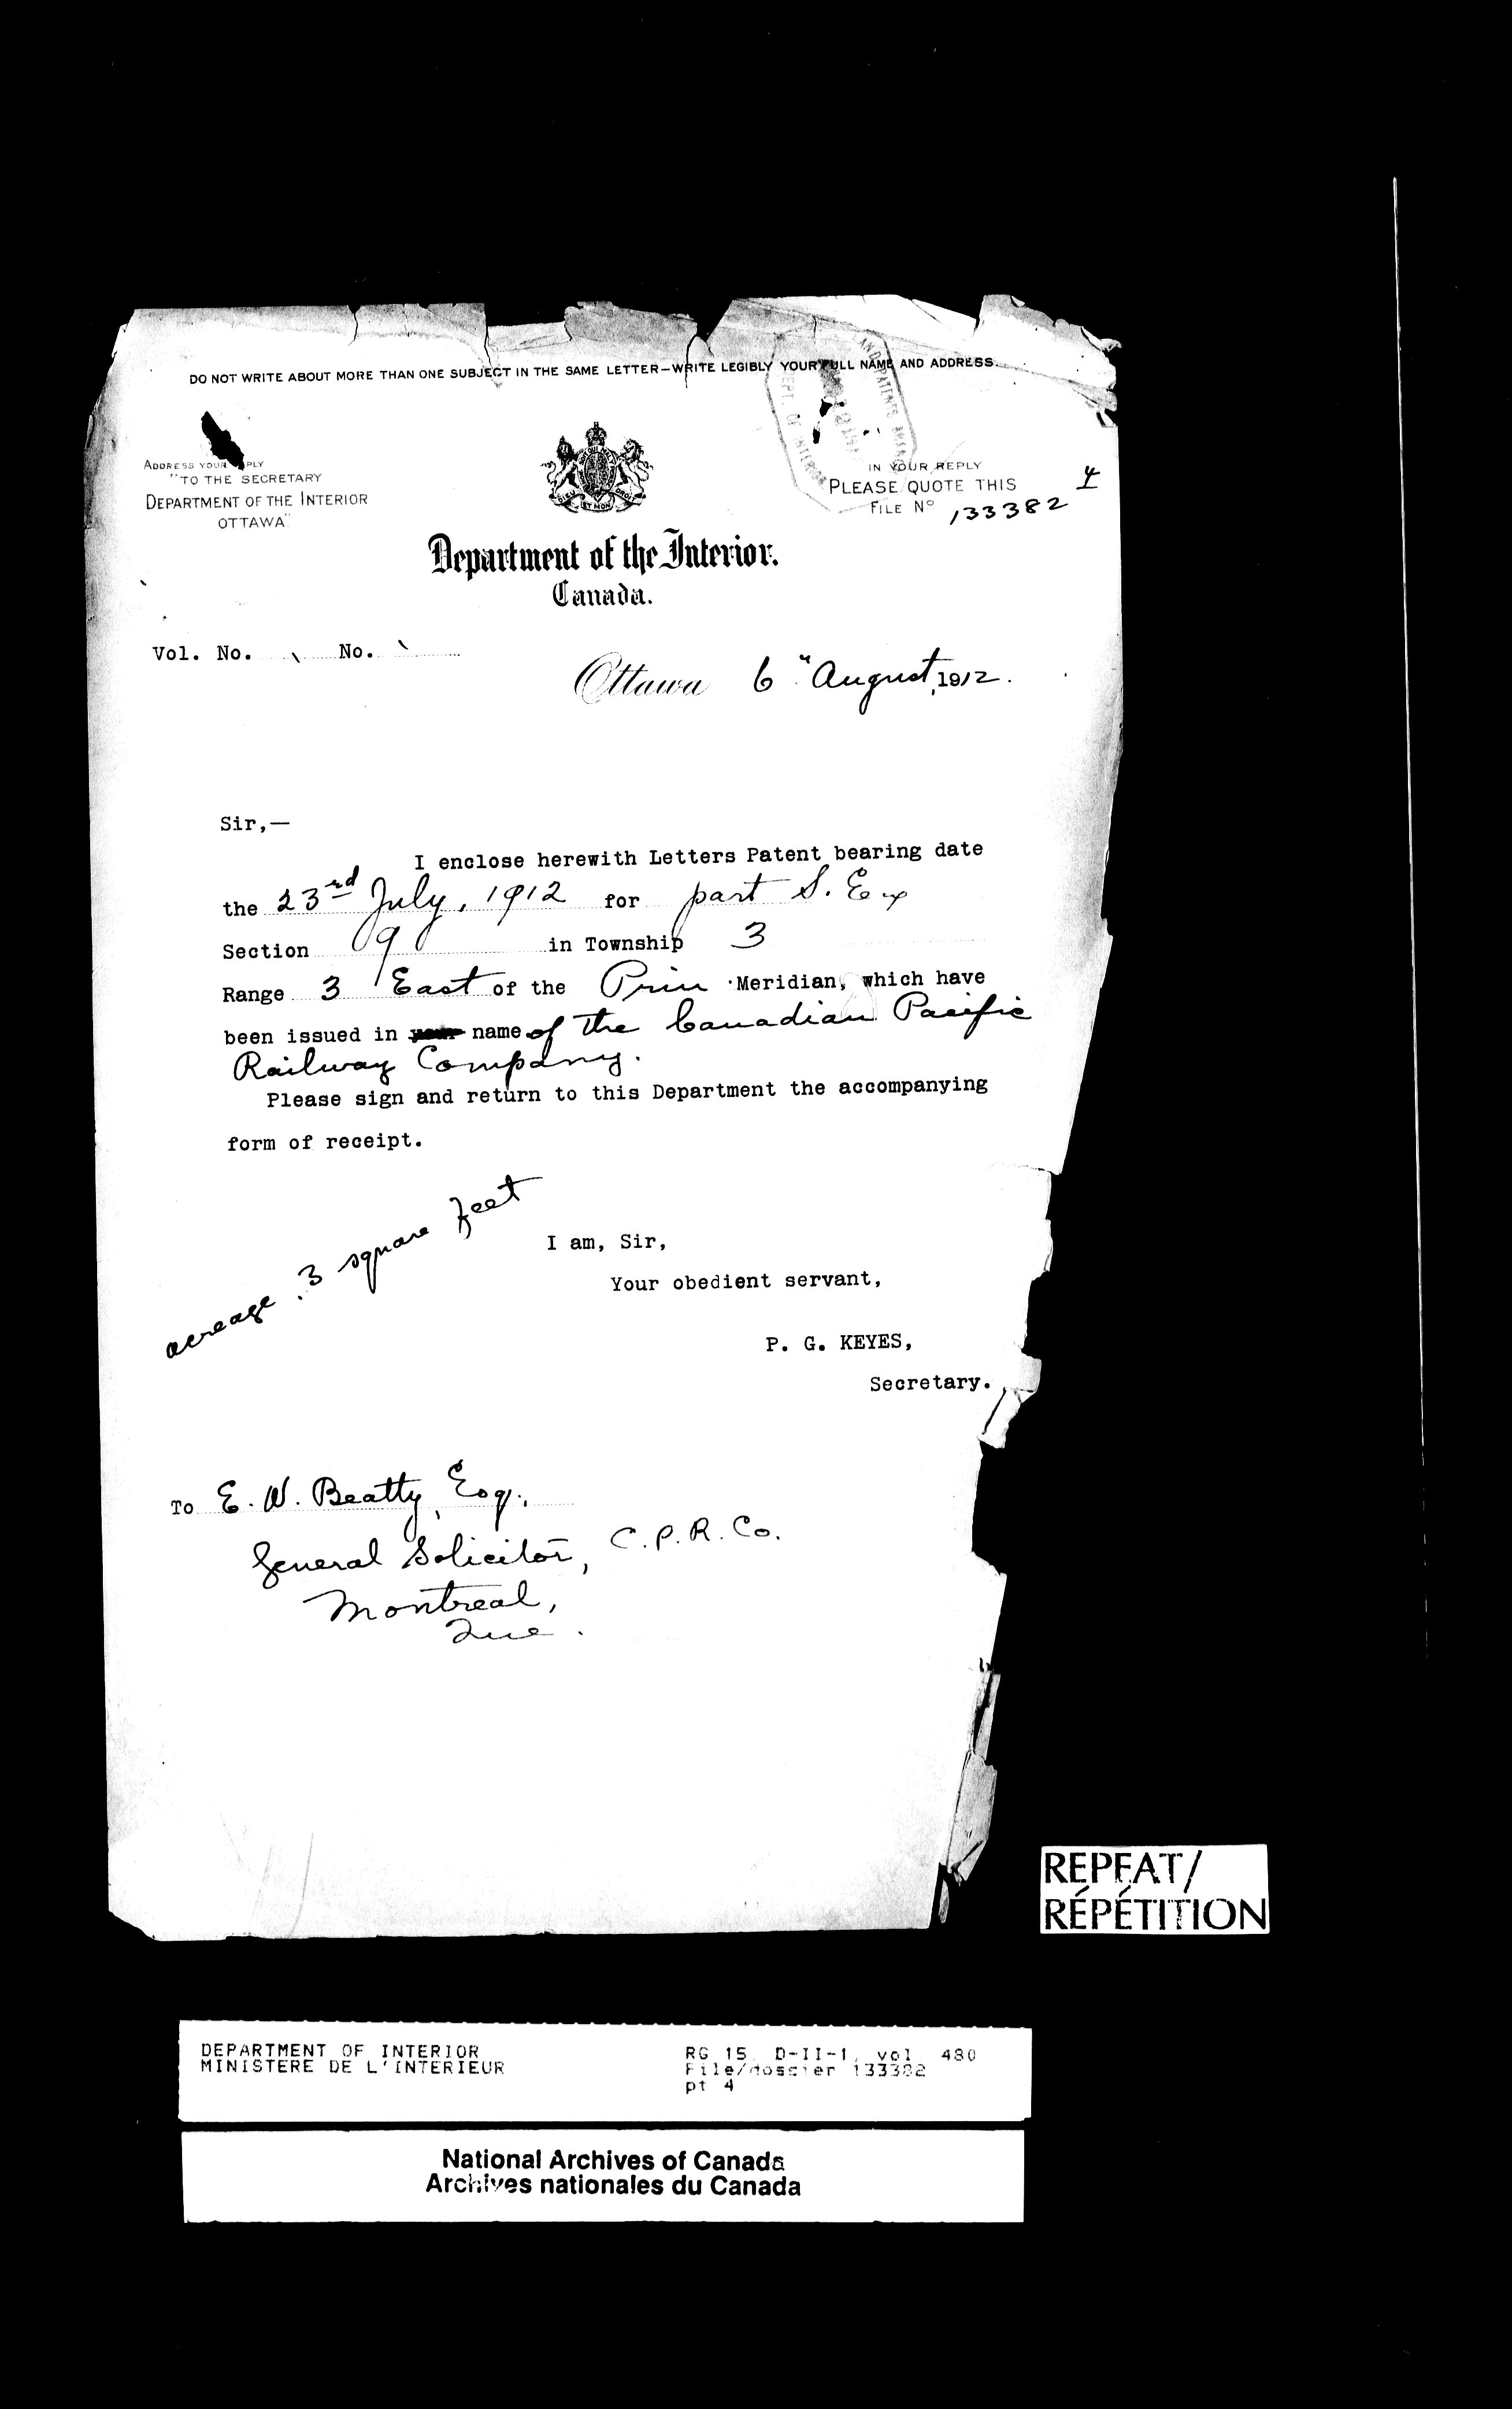 DO NOT WRITE ABOUT MORE THAN ONE SUBJECT IN THE SAME LETTER—WRITE LEGIBLY YOUR FULL NAME AND ADDRESS.
LAND PATENTS BRANCH
DEPT. OF INTERIOR
ADDRESS YOUR REPLY
"TO THE SECRETARY
DEPARTMENT OF THE INTERIOR
OTTAWA"
IN YOUR REPLY
PLEASE QUOTE THIS 4
FILE No 133382
DIEU ET MON DROIT
Department of the Interior.
Canada.
Vol. No. No.
Ottawa 6" August, 1912.
Sir,—
I enclose herewith Letters Patent bearing date
the 23rd July, 1912 for part S. E.
Section 9 in Township 3
Range 3 East of the Prin Meridian, which have
been issued in your name of the Canadian Pacific
Railway Company.
Please sign and return to this Department the accompanying
form of receipt.
acreage .3 square feet
I am, Sir,
Your obedient servant,
P. G. KEYES,
Secretary.
To E. W. Beatty, Esq.,
General Solicitor, C.P.R. Co.
Montreal,
Que.
REPEAT/
RÉPÉTITION
DEPARTMENT OF INTERIOR
MINISTERE DE L'INTERIEUR
RG 15, D-II-1, vol 480
File/dossier 133382
pt 4
National Archives of Canada
Archives nationales du Canada